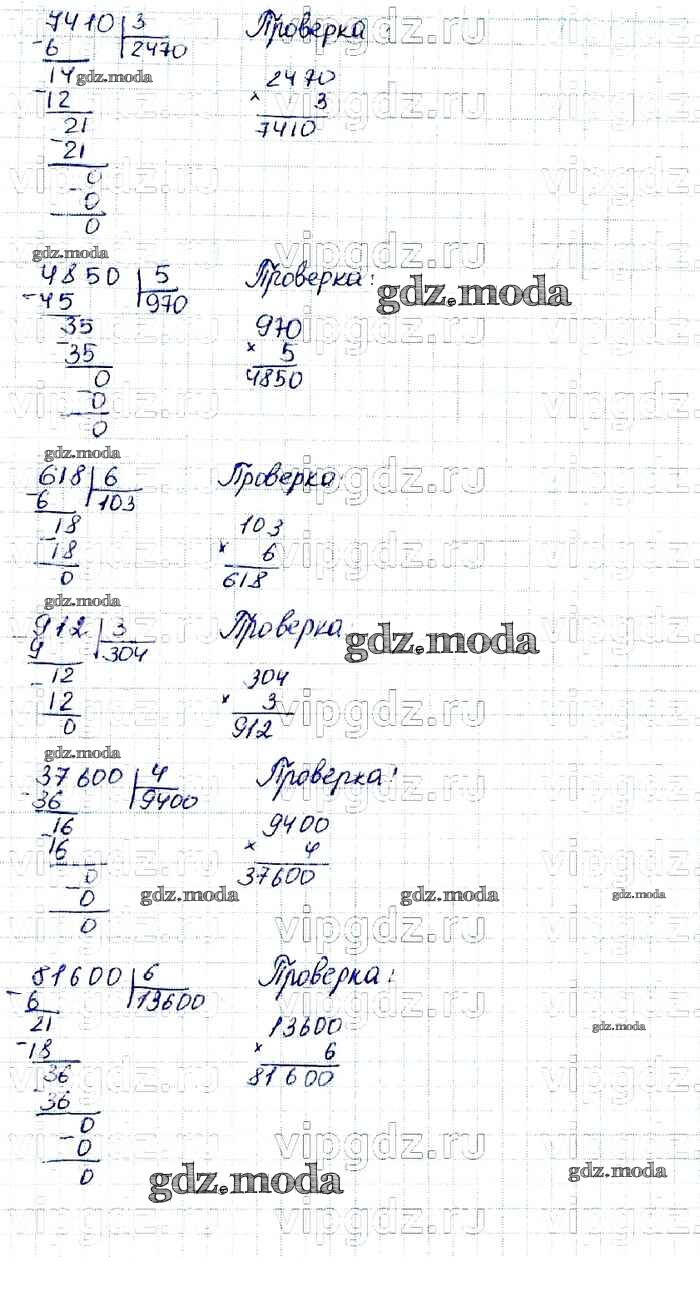 7410 3 Проверка
6 2470
14 gdz.moda 2470
12 × 3
21 7410
21
0
0
0
gdz.moda
4850 5 Проверка:
45 970 gdz.moda
35 970
35 × 5
0 4850
0
0
gdz.moda
618 6 Проверка:
6 103
18 103
18 × 6
0 618
gdz.moda
912 3 Проверка:
9 304 gdz.moda
12 304
12 × 3
0 912
gdz.moda
37600 4 Проверка:
36 9400
16 9400
16 × 4
0 37600
0 gdz.moda gdz.moda gdz.moda
0
81600 6 Проверка:
6 13600
21 13600 gdz.moda
18 × 6
36 81600
36
0
0
0 gdz.moda gdz.moda
vipgdz.ru